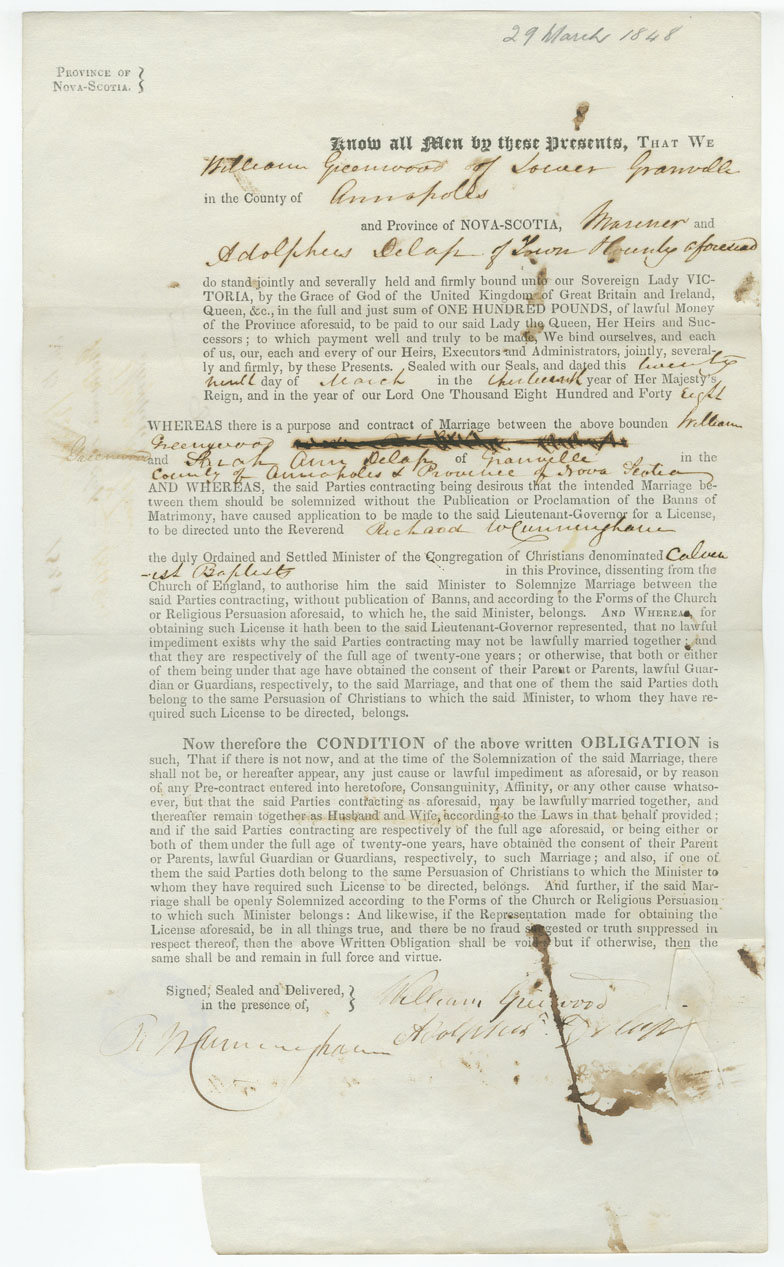 29 March 1848
PROVINCE OF }
NOVA-SCOTIA. }
Know all Men by these Presents, THAT WE
William Greenwood of Lower Granville
in the County of Annapolis
and Province of NOVA-SCOTIA, Mariner and
Adolphus Delap of Town & County aforesaid
do stand jointly and severally held and firmly bound unto our Sovereign Lady VIC-
TORIA, by the Grace of God of the United Kingdom of Great Britain and Ireland,
Queen, &c., in the full and just sum of ONE HUNDRED POUNDS, of lawful Money
of the Province aforesaid, to be paid to our said Lady the Queen, Her Heirs and Suc-
cessors; to which payment well and truly to be made, We bind ourselves, and each
of us, our, each and every of our Heirs, Executors and Administrators, jointly, several-
ly and firmly, by these Presents. Sealed with our Seals, and dated this twenty
ninth day of March in the thirteenth year of Her Majesty's
Reign, and in the year of our Lord One Thousand Eight Hundred and Forty Eight
WHEREAS there is a purpose and contract of Marriage between the above bounden William
Greenwood
and Sarah Ann Delap of Granville in the
County of Annapolis & Province of Nova Scotia
AND WHEREAS, the said Parties contracting being desirous that the intended Marriage be-
tween them should be solemnized without the Publication or Proclamation of the Banns of
Matrimony, have caused application to be made to the said Lieutenant-Governor for a License,
to be directed unto the Reverend Richard W Cunningham
the duly Ordained and Settled Minister of the Congregation of Christians denominated Calven
-ist Baptists in this Province, dissenting from the
Church of England, to authorise him the said Minister to Solemnize Marriage between the
said Parties contracting, without publication of Banns, and according to the Forms of the Church
or Religious Persuasion aforesaid, to which he, the said Minister, belongs. AND WHEREAS, for
obtaining such License it hath been to the said Lieutenant-Governor represented, that no lawful
impediment exists why the said Parties contracting may not be lawfully married together; and
that they are respectively of the full age of twenty-one years; or otherwise, that both or either
of them being under that age have obtained the consent of their Parent or Parents, lawful Guar-
dian or Guardians, respectively, to the said Marriage, and that one of them the said Parties doth
belong to the same Persuasion of Christians to which the said Minister, to whom they have re-
quired such License to be directed, belongs.
Now therefore the CONDITION of the above written OBLIGATION is
such, That if there is not now, and at the time of the Solemnization of the said Marriage, there
shall not be, or hereafter appear, any just cause or lawful impediment as aforesaid, or by reason
of any Pre-contract entered into heretofore, Consanguinity, Affinity, or any other cause whatso-
ever, but that the said Parties contracting as aforesaid, may be lawfully married together, and
thereafter remain together as Husband and Wife, according to the Laws in that behalf provided;
and if the said Parties contracting are respectively of the full age aforesaid, or being either or
both of them under the full age of twenty-one years, have obtained the consent of their Parent
or Parents, lawful Guardian or Guardians, respectively, to such Marriage; and also, if one of
them the said Parties doth belong to the same Persuasion of Christians to which the Minister to
whom they have required such License to be directed, belongs. And further, if the said Mar-
riage shall be openly Solemnized according to the Forms of the Church or Religious Persuasion
to which such Minister belongs: And likewise, if the Representation made for obtaining the
License aforesaid, be in all things true, and there be no fraud suggested or truth suppressed in
respect thereof, then the above Written Obligation shall be void, but if otherwise, then the
same shall be and remain in full force and virtue.
Signed, Sealed and Delivered, }
in the presence of, }
William Greenwood
R W Cunningham Adolphus Delap